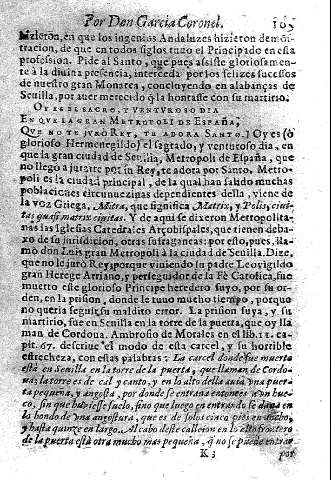 Por Don Garcia Coronel.
hizieron, en que los ingenios Andaluzes hizieron demos-
tracion, de que en todos siglos tuuo el Principado en esta
profession. Pide al Santo, que pues assiste gloriosamen-
te à la diuina presencia, interceda por los felizes sucessos
de nuestro gran Monarca, concluyendo en alabanças de
Seuilla, por auer merecido q̃ la honrasse con su martirio.
OY ES EL SACRO, Y VENTVROSO DIA
EN QVE LA GRAN METROPOLI DE ESPAÑA,
QVE NO TE IVRO REY, TE ADORA SANTO.] Oy es (ò
glorioso Hermenegildo) el sagrado, y venturoso dia, en
que la gran ciudad de Seuilla, Metropoli de España, que
no llegò a jurarte por su Rey, te adora por Santo. Metro-
poli es la ciudad principal, de la qual han salido muchas
poblaciones circunuezinas dependientes della, viene de
la voz Griega, Mitra, que significa Matrix, y Polis, ciui-
tas quasi matrix ciuitas. Y de aqui se dixeron Metropolita-
nas las Iglesias Catedrales Arçobispales, que tienen deba-
xo de su jurisdicion, otras sufraganeas: por esto, pues, lla-
mo don Luis gran Metropoli à la ciudad de Seuilla. Dize,
que no le juro Rey, porque viuiendo su padre Leouigildo
gran Herege Arriano, y perseguidor de la Fè Catolica, fue
muerto este glorioso Principe heredero suyo, por su or-
den, en la prision, donde le tuuo mucho tiempo, porque
no queria seguir su maldito error. La prision suya, y su
martirio, fue en Seuilla en la torre de la puerta, que oy lla-
man de Cordoua. Ambrosio de Morales en el lib. 11. ca-
pit. 67. descriue el modo de esta carcel, y su horrible
estrecheza, con estas palabras: La carcel donde fue muerto
està en Seuilla en la torre de la puerta, que llaman de Cordo-
ua; la torre es de cal y canto, y en lo alto della auia vna puer-
ta pequeña, y angosta, por donde se entraua entonces a vn hue-
co, sin que huuiesse suelo, sino que luego en entrando se daua en
lo hondo de vna angostura, que es de solos cinco pies en ancho,
y hasta quinze en largo. Al cabo deste callejon en lo alto frontero
de la puerta està otra mucho mas pequeña, q̃ no se puede entrar
K 3
por